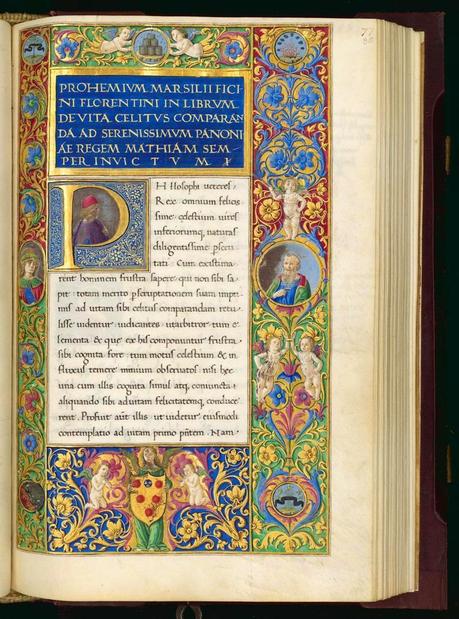 PROHEMIVM MARSILII FICI
NI FLORENTINI IN LIBRVM
DE VITA CELITVS COMPARAN
DA AD SERENISSIMVM PANONI
AE REGEM MATHIAM SEM
PER INVICTVM I
PHIlosophi ueteres
Rex omnium felicis
sime cęlestium uires
inferiorumq, naturas
diligentissime pscru
tati Cum existima
rent hominem frustra sapere qui non sibi sa
pit totam merito pscruptationem suam inpri
mis ad uitam sibi celitus comparandam retu
lisse uidentur iudicantes ut arbitror tum e
lementa & que ex his componuntur frustra
sibi cognita fore tum motus celestium & in
fluxus temere nimium obseruatos nisi hec
una cum illis cognita simul atq, coniuncta
aliquando sibi ad uitam felicitatemq, conduce
rent Profuit aūt illis ut uidetur eiusmodi
contemplatio ad uitam primo pn̄tem Nam